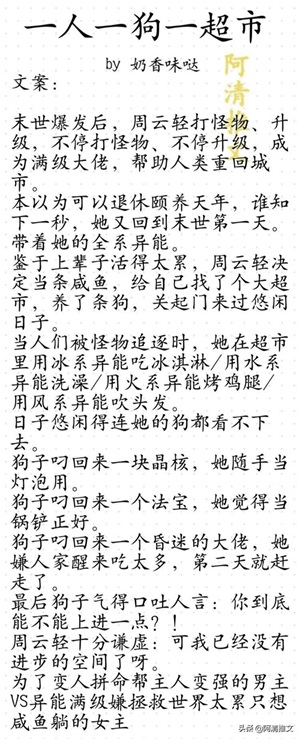 一人一狗一超市
by 奶香味哒
阿清
文案：
末世爆发后，周云轻打怪物、升
级，不停打怪物、不停升级，成
为满级大佬，帮助人类重回城
市。
本以为可以退休颐养天年，谁知
下一秒，她又回到末世第一天。
带着她的全系异能。
鉴于上辈子活得太累，周云轻决
定当条咸鱼，给自己找了个大超
市，养了条狗，关起门来过悠闲
日子。
当人们被怪物追逐时，她在超市
里用冰系异能吃冰淇淋/用水系
异能洗澡/用火系异能烤鸡腿/
用风系异能吹头发。
日子悠闲得连她的狗都看不下
去。
狗子叼回来一块晶核，她随手当
灯泡用。
狗子叼回来一个法宝，她觉得当
锅铲正好。
狗子叼回来一个昏迷的大佬，她
嫌人家醒来吃太多，第二天就赶
走了。
最后狗子气得口吐人言：你到底
能不能上进一点？！
周云轻十分谦虚：可我已经没有
进步的空间了呀。
为了变人拼命帮主人变强的男主
VS异能满级嫌拯救世界太累只想
咸鱼躺的女主
头条 @阿清推文